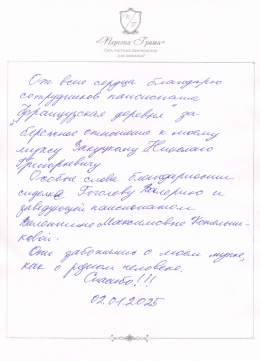 «Персона Грата»
От всего сердца благодарю
сотрудников пансионата
"Французская деревня" за
бережное отношение к моему
мужу Николаю
Григорьевичу
Особые слова благодарности
сиделке Валерию и
заведующей пансионатом
Валентине Максимовне
Они заботились о моем муже,
как о родном человеке.
Спасибо!!!
02.01.2025